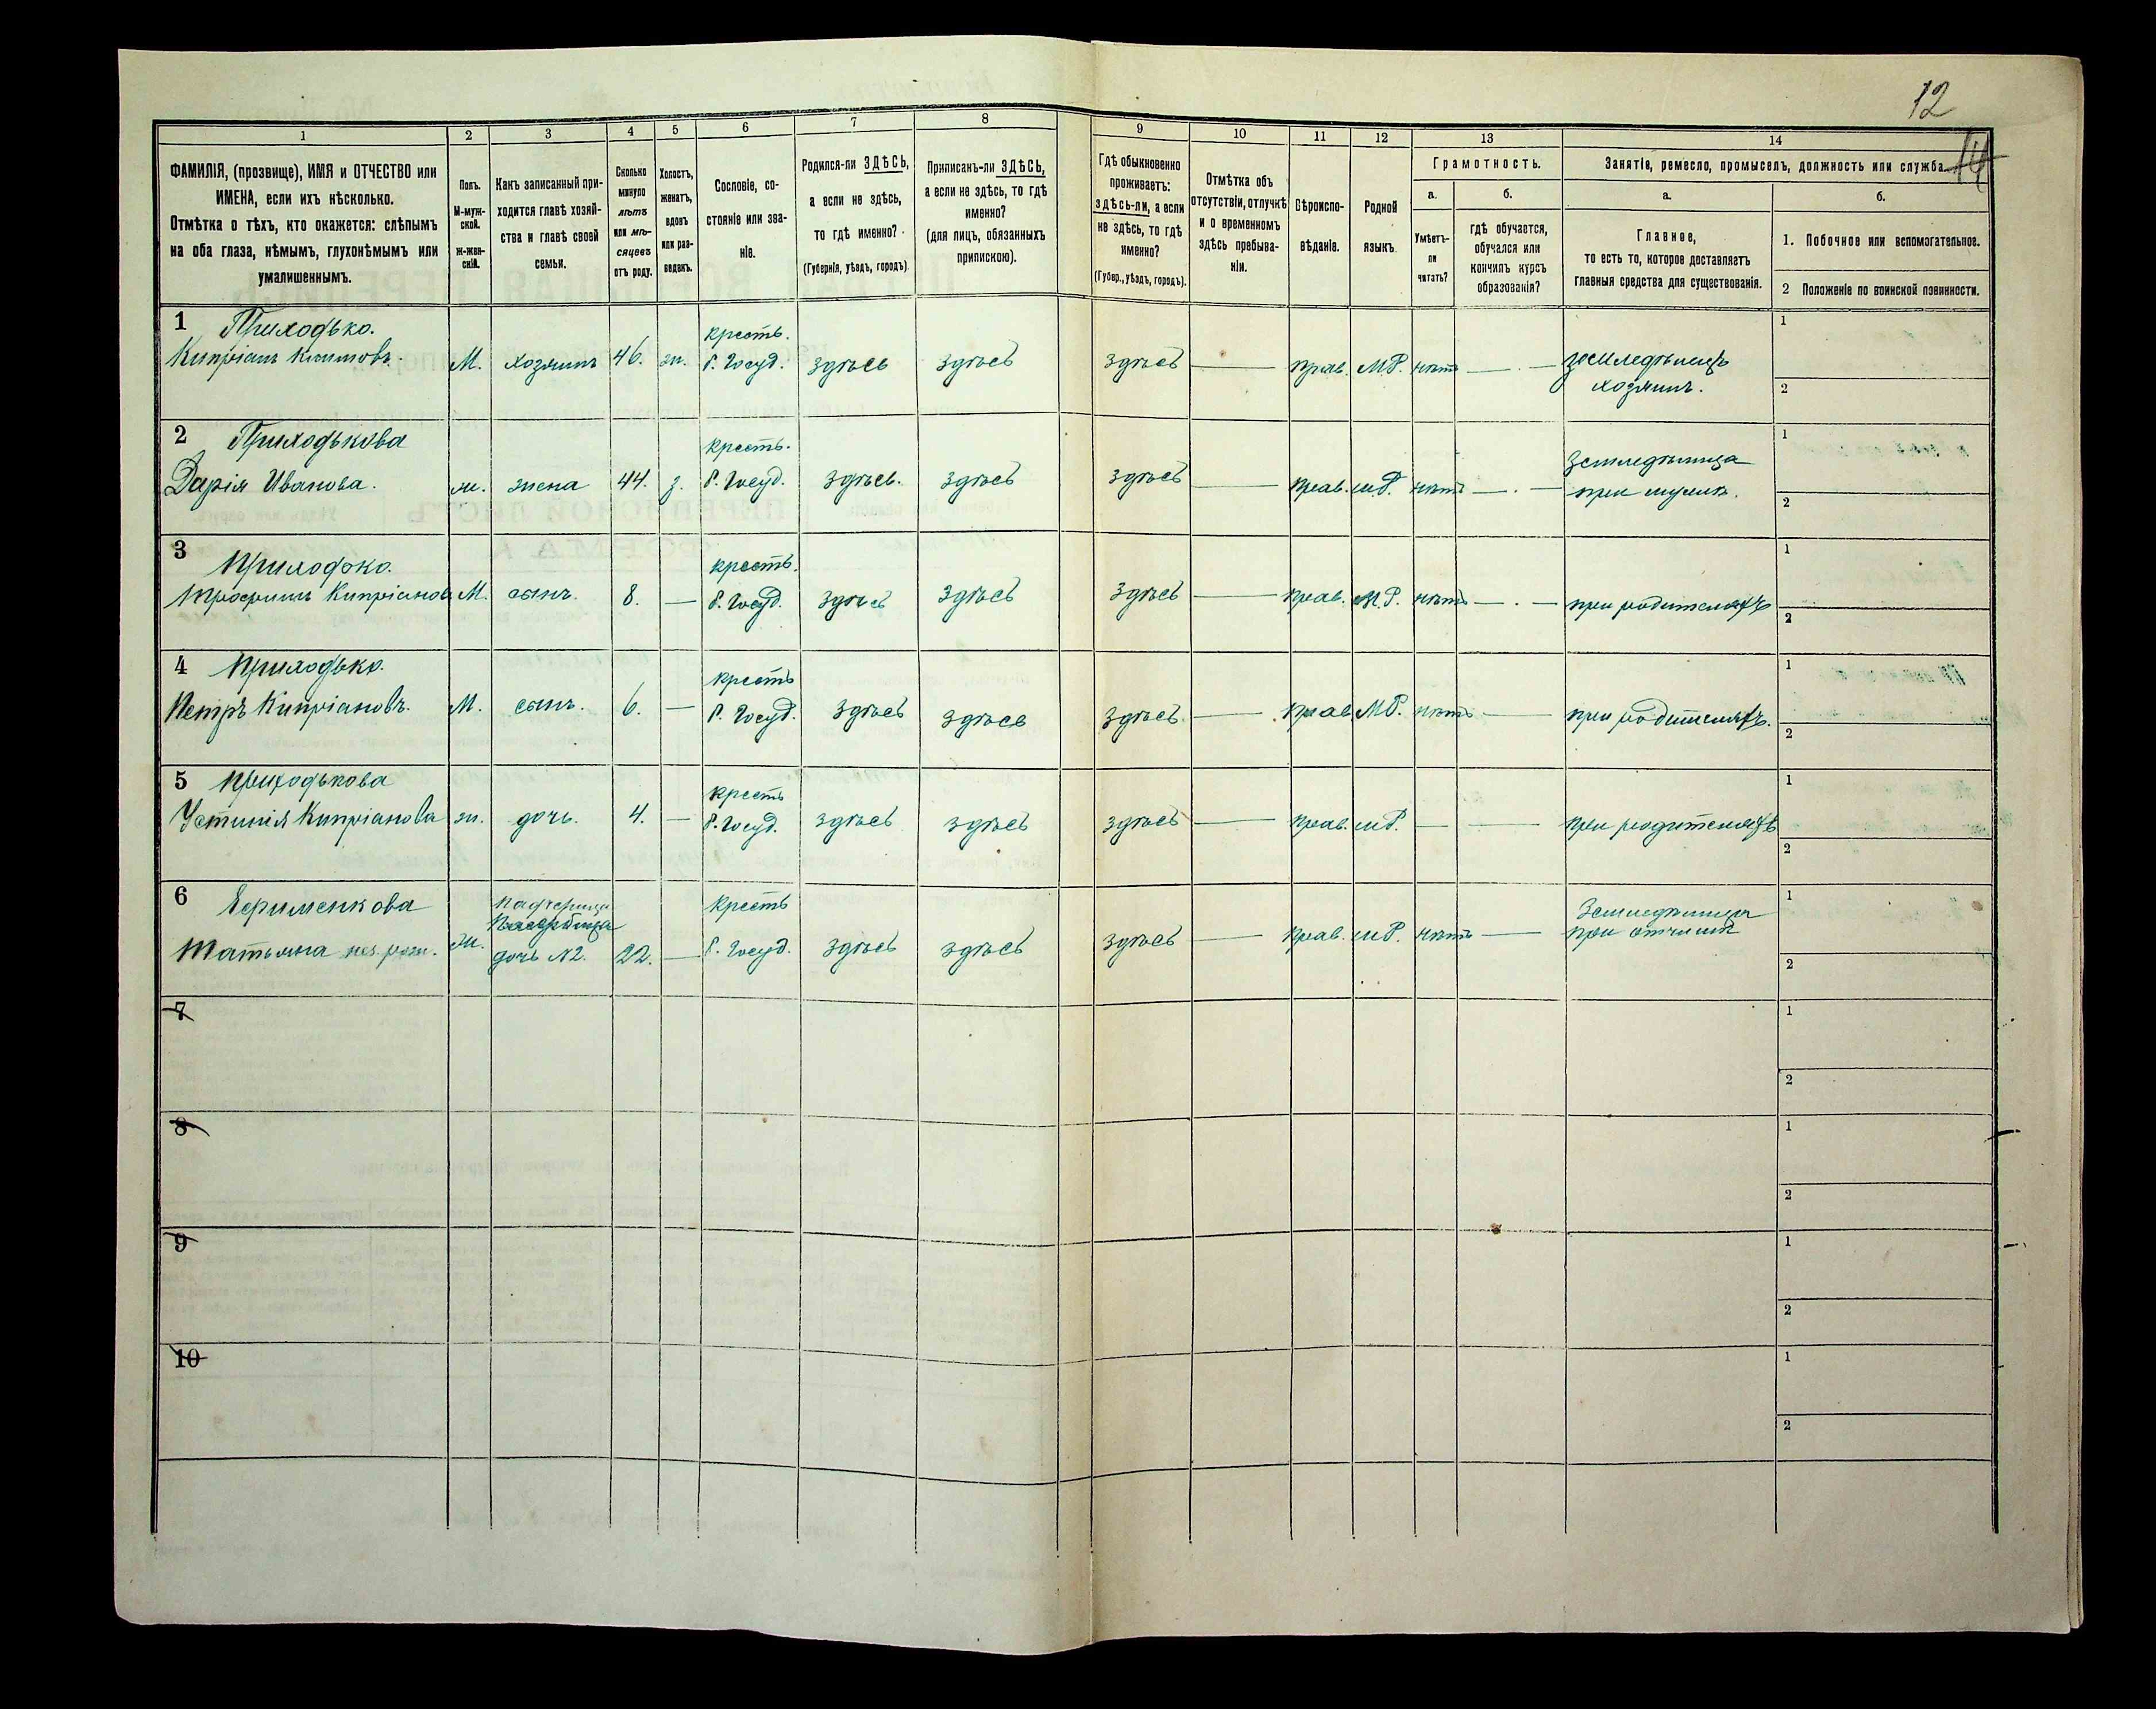 12
14
1
2
3
4
5
6
7
8
9
10
11
12
13
14
ФАМИЛІЯ, (прозвище), ИМЯ и ОТЧЕСТВО или
ИМЕНА, если ихъ нѣсколько.
Отмѣтка о тѣхъ, кто окажется: слѣпымъ
на оба глаза, нѣмымъ, глухонѣмымъ или
умалишеннымъ.
Полъ.
М-муж-
ской.
Ж-жен-
скій.
Какъ записанный при-
ходится главѣ хозяй-
ства и главѣ своей
семьи.
Сколько
минуло
лѣтъ
или мѣ-
сяцевъ
отъ роду.
Холостъ,
женатъ,
вдовъ
или раз-
веденъ.
Сословіе, со-
стояніе или зва-
ніе.
Родился-ли ЗДѢСЬ,
а если не здѣсь,
то гдѣ именно?
(Губернія, уѣздъ, городъ)
Приписанъ-ли ЗДѢСЬ,
а если не здѣсь, то гдѣ
именно?
(для лицъ, обязанныхъ
припискою).
Гдѣ обыкновенно
проживаетъ:
здѣсь-ли, а если
не здѣсь, то гдѣ
именно?
(Губер., уѣздъ, городъ).
Отмѣтка объ
отсутствіи, отлучкѣ
и о временномъ
здѣсь пребыва-
ніи.
Вѣроиспо-
вѣданіе.
Родной
языкъ.
Грамотность.
а.
Умѣетъ-
ли
читать?
б.
гдѣ обучается,
обучался или
кончилъ курсъ
образованія?
Занятіе, ремесло, промыселъ, должность или служба.
а.
Главное,
то есть то, которое доставляетъ
главныя средства для существованія.
б.
1. Побочное или вспомогательное.
2 Положеніе по воинской повинности.
1 Приходько.
Кипріанъ Климовъ.
М.
хозяинъ
46.
ж.
крестъ.
б. Госуд.
здѣсь
здѣсь
здѣсь
прав.
МР.
нѣтъ
земледѣлецъ
хозяинъ.
1
2
2 Приходькова
Дарія Иванова.
ж.
жена
44.
з.
крестъ.
б. Госуд.
здѣсь.
здѣсь
здѣсь
прав.
мР.
нѣтъ
земледѣлица
при мужѣ.
1
2
3 Приходько.
Трофимъ Кипріановъ
М.
сынъ.
8.
крестъ.
б. Госуд.
здѣсь
здѣсь
здѣсь
прав.
М.Р.
нѣтъ
при родителяхъ
1
2
4 Приходько.
Петръ Кипріановъ.
М.
сынъ.
6.
крестъ
б. Госуд.
здѣсь
здѣсь
здѣсь
прав.
МР.
нѣтъ
при родителяхъ.
1
2
5 Приходькова
Устинія Кипріанова
ж.
дочь.
4.
крестъ
б. Госуд.
здѣсь
здѣсь
здѣсь
прав.
мР.
при родителяхъ
1
2
6 Ефименкова
Татьяна нез. рож.
ж.
падчерица
дочь №2.
22.
крестъ
б. Госуд.
здѣсь
здѣсь
здѣсь
прав.
мР.
нѣтъ
Земледѣлица
при отчимѣ
1
2
7
1
2
8
1
2
9
1
2
10
1
2